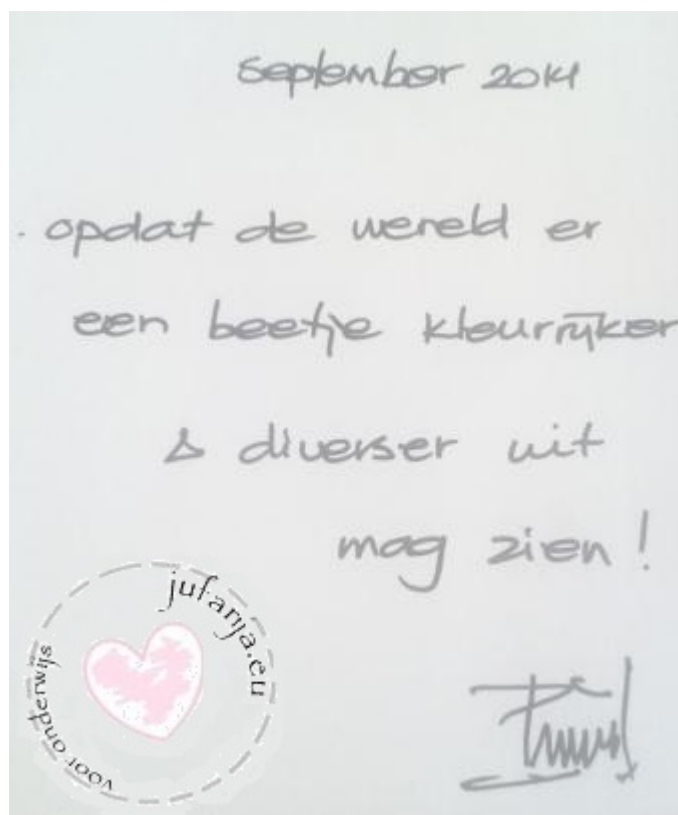 september 2014
. opdat de wereld er
een beetje kleurrijker
& diverser uit
mag zien !
jufanja.eu
voor onderwijs